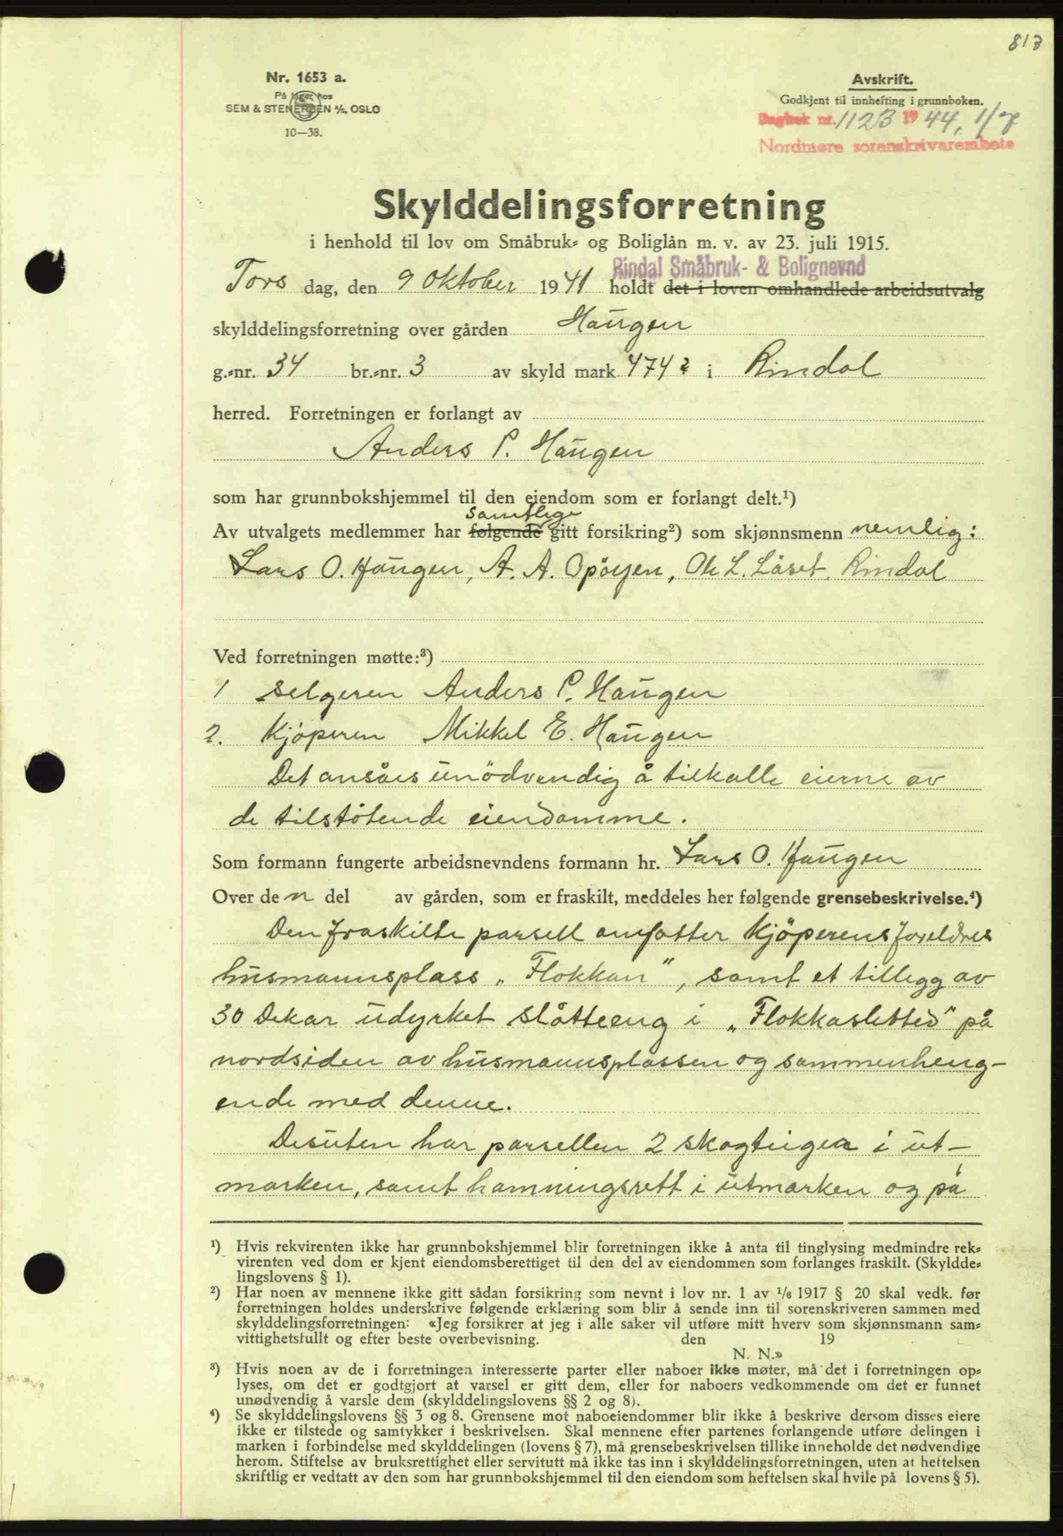 813
Nr. 1653 a.
På lager hos
SEM & STENERSEN A/S. OSLO
10—38.
Avskrift.
Godkjent til innhefting i grunnboken.
Dagbok nr. 1123 1944, 1/7
Nordmøre sorenskrivarembete
Skylddelingsforretning
i henhold til lov om Småbruk- og Boliglån m. v. av 23. juli 1915.
Rindal Småbruk- & Bolignevnd
Tors dag, den 9 Oktober 1941 holdt det i loven omhandlede arbeidsutvalg
skylddelingsforretning over gården Haugen
g.-nr. 34 br.-nr. 3 av skyld mark 4742 i Rindal
herred. Forretningen er forlangt av
Anders P. Haugen
som har grunnbokshjemmel til den eiendom som er forlangt delt.¹)
samtlige
Av utvalgets medlemmer har følgende gitt forsikring²) som skjønnsmenn nemlig:
Lars O. Haugen, A. A. Opöyen, Ole L. Løset, Rindal
Ved forretningen møtte:³)
1 Selgeren Anders P. Haugen
2. Kjöperen Mikkel E. Haugen
Det ansåes unödvendig å tilkalle eierne av
de tilstötende eiendomme.
Som formann fungerte arbeidsnevndens formann hr. Lars O. Haugen
Over den del av gården, som er fraskilt, meddeles her følgende grensebeskrivelse.⁴)
Den fraskilte parsell omfatter kjöperens foreldres
husmannsplass „Flokkan", samt et tillegg av
30 Dekar udyrket slåtteeng i „Flokkasletted" på
nordsiden av husmannsplassen og sammenheng-
ende med denne.
Desuten har parsellen 2 skogteiger i ut-
marken, samt hamningsrett i utmarken og på
¹) Hvis rekvirenten ikke har grunnbokshjemmel blir forretningen ikke å anta til tinglysing medmindre rek-
virenten ved dom er kjent eiendomsberettiget til den del av eiendommen som forlanges fraskilt. (Skyldde-
lingslovens § 1).
²) Har noen av mennene ikke gitt sådan forsikring som nevnt i lov nr. 1 av 1/6 1917 § 20 skal vedk. før
forretningen holdes underskrive følgende erklæring som blir å sende inn til sorenskriveren sammen med
skylddelingsforretningen: «Jeg forsikrer at jeg i alle saker vil utføre mitt hverv som skjønnsmann sam-
vittighetsfullt og efter beste overbevisning. den 19
N. N.»
³) Hvis noen av de i forretningen interesserte parter eller naboer ikke møter, må det i forretningen op-
lyses, om det er godtgjort at varsel er gitt dem, eller for naboers vedkommende om det er funnet
unødvendig å varsle dem (skylddelingslovens §§ 2 og 8).
⁴) Se skylddelingslovens §§ 3 og 8. Grensene mot naboeiendommer blir ikke å beskrive dersom disses eiere
ikke er tilstede og samtykker i beskrivelsen. Skal mennene efter partenes forlangende utføre delingen i
marken i forbindelse med skylddelingen (lovens § 7), må grensebeskrivelsen tillike inneholde det nødvendige
herom. Stiftelse av bruksrettighet eller servitutt må ikke tas inn i skylddelingsforretningen, uten at heftelsen
skriftlig er vedtatt av den som har grunnbokshjemmel til den eiendom som heftelsen skal hvile på lovens § 5).